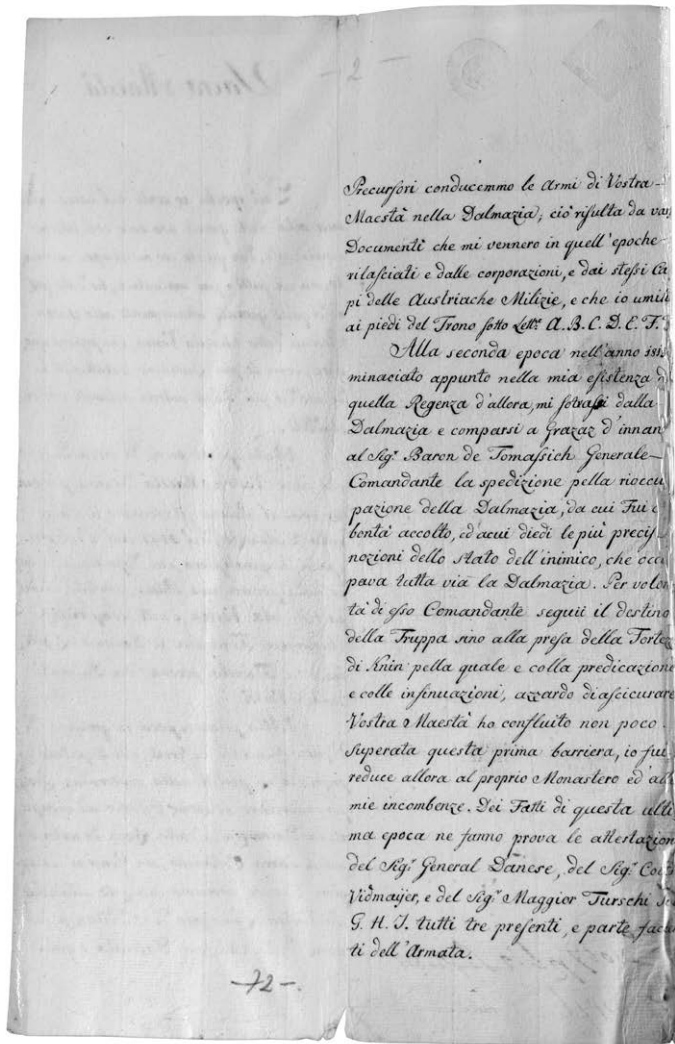 - 2 -
Precursori conducemmo le Armi di Vostra -
Maestà nella Dalmazia; ciò risulta da var
Documenti che mi vennero in quell'epoche -
rilasciati e dalle corporazioni, e dai stessi Ca
pi delle Austriache Milizie, e che io umili
ai piedi del Trono sotto Lett.e A. B. C. D. E. F.
Alla seconda epoca nell'anno 181
minaciato appunto nella mia esistenza d
quella Regenza d'allora, mi sotrassi dalla
Dalmazia e comparsi a Grazaz d'innan
al Sig.r Baron de Tomassich Generale -
Comandante la spedizione pella rioccu
pazione della Dalmazia, da cui Fui c
bontà accolto, ed'acui diedi le più precis
nozioni dello stato dell'inimico, che occu
pava tutta via la Dalmazia. Per volon
tà di esso Comandante seguii il destino
della Truppa sino alla presa della Fortez
di Knin pella quale e colla predicazione
e colle insinuazioni, azzardo diascicurare
Vostra Maestà ho confluito non poco.
Superata questa prima barriera, io fui
reduce allora al proprio Monastero ed' all
mie incombenze. Dei Fatti di questa ulti
ma epoca ne fanno prova le attestazion
del Sig.r General Danese, del Sig.r Co
Vidmaijer, e del Sig.r Maggior Turschi
G. H. I. tutti tre presenti, e parte facen
ti dell'Armata.
- 72 -.